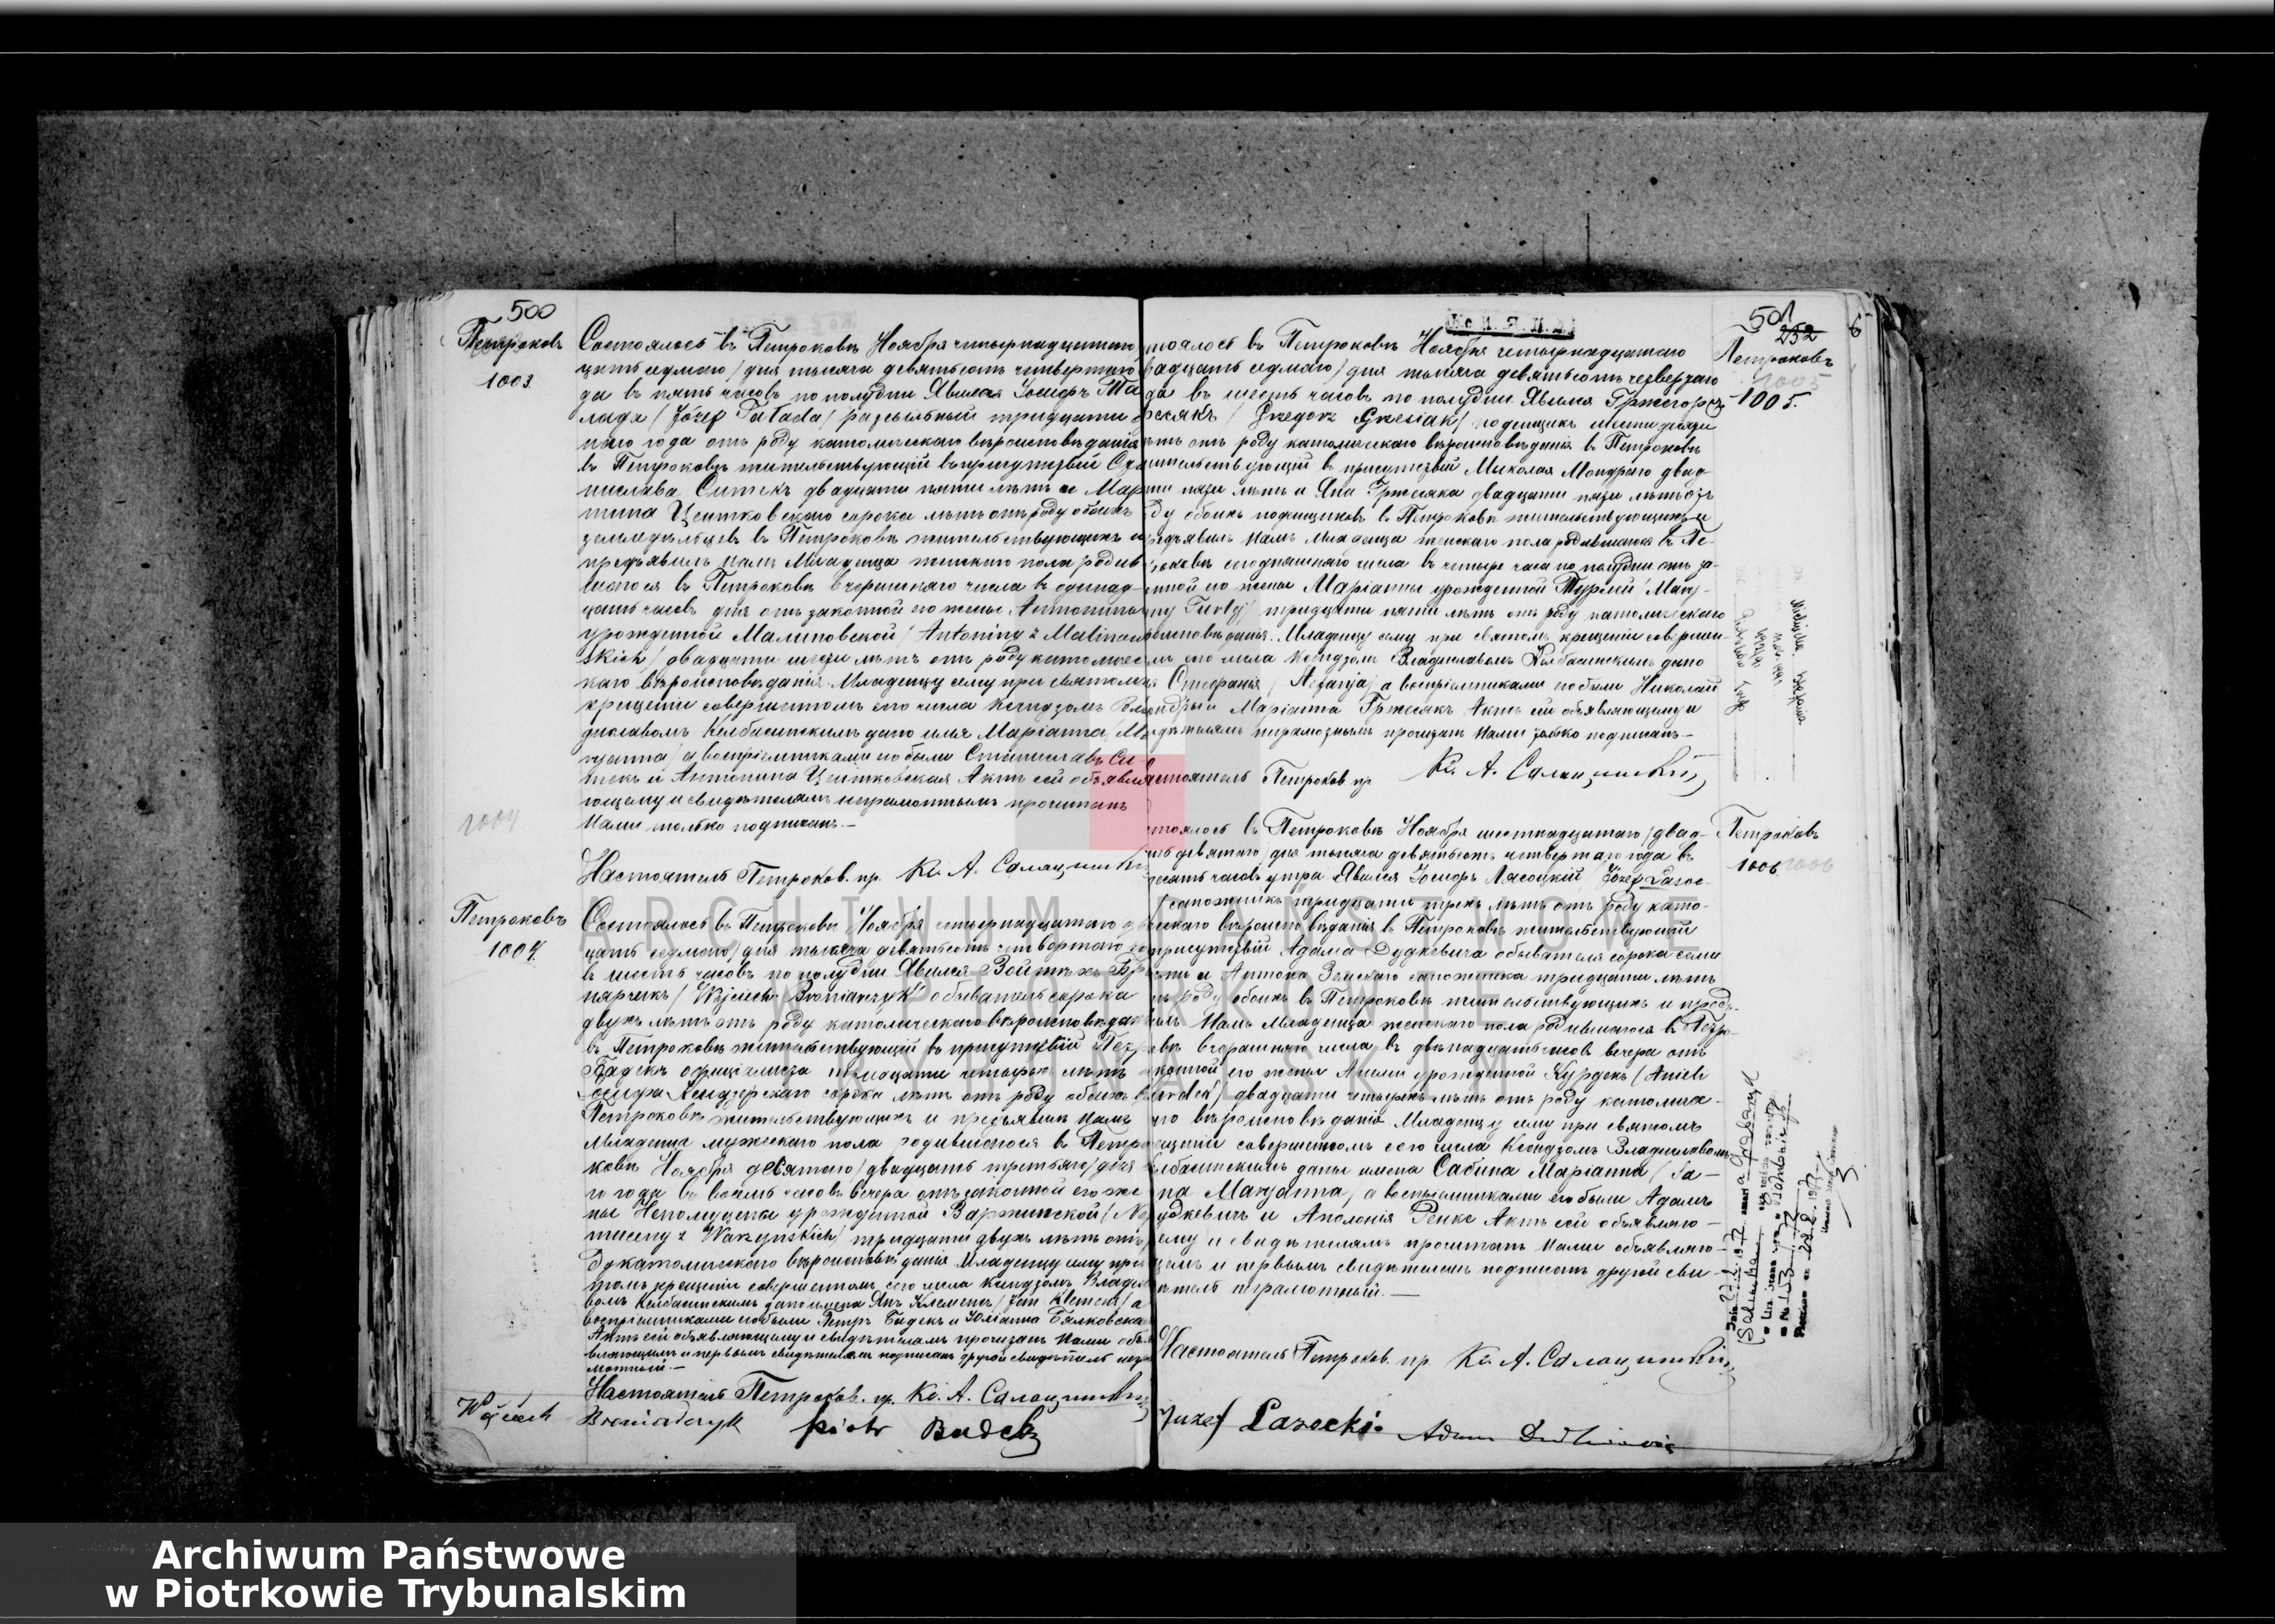 500
Петроковъ
1003.
Состоялось въ Петроковѣ Ноября четырнадцатаго
цать седмаго / дня тысяча девятьсотъ четвертаго
да въ пять часовъ по полудни Явился Iосифъ Та
лада / Józef Tałada / разсыльный тридцати
него года отъ роду католическаго вѣроисповѣданія
въ Петроковѣ жительствующій въ присутствіи Ста
нислава Ситекъ двадцати пяти лѣтъ и Мар
тина Центковскаго сорока лѣтъ отъ роду обоихъ
земледѣльцевъ въ Петроковѣ жительствующихъ и
предъявилъ Намъ Младенца женскаго пола родив
шагося въ Петроковѣ вчерашняго числа въ одинад-
цать часовъ дня отъ законной его жены Антонины
урожденной Малиновской / Antoniny z Malinow
skich / двадцати шести лѣтъ отъ роду католичес
каго вѣроисповѣданія. Младенцу сему при святомъ
крещеніи совершенномъ сего числа Ксендзомъ Вла
диславомъ Келбасинскимъ дано имя Маріанна / Ma
ryanna / а воспріемниками его были Станиславъ Си-
текъ и Антонина Центковская Актъ сей объявля
ющему и свидѣтелямъ неграмотнымъ прочитанъ
Нами только подписанъ.—
Настоятель Петроков. пр. Кс. А.
1004
Петроковъ
1004.
Состоялось въ Петроковѣ Ноября четырнадцатаго
цать седмаго / дня тысяча девятьсотъ четвертаго
въ шесть часовъ по полудни Явился Войтѣхъ Бро
нярчикъ / Wojciech Broniarczyk / обыватель сорока
двухъ лѣтъ отъ роду католическаго вѣроисповѣдан
въ Петроковѣ жительствующій въ присутствіи Петр
Бадекъ тридцати четырехъ лѣтъ
сорока лѣтъ отъ роду обоихъ въ
Петроковѣ жительствующихъ и предъявилъ Намъ
Младенца мужескаго пола родившагося въ Петро
ковѣ Ноября девятаго / двадцать третьяго / дня
го года въ восемь часовъ вечера отъ законной его же
ны Непомуцены урожденной Варжинской / Ne
muceny z Warzyńskich / тридцати двухъ лѣтъ отъ
ду католическаго вѣроисповѣданія Младенцу сему при
томъ крещеніи совершенномъ сего числа Ксендзомъ Владис
вомъ Келбасинскимъ дано имена Янъ Клеменсъ / Jan Klemens / а
воспріемниками его были Петръ Бадекъ и Юліанна Бялковска
Актъ сей объявляющему и свидѣтелямъ прочитанъ Нами объя
вляющимъ и первымъ свидѣтелемъ подписанъ другой свидѣтель негра
мотный.—
Настоятель Петроков. пр. Кс. А.
Wojciech Broniarczyk Piotr Badek
501
232
6
Петроковъ
1005
1005.
тоялось въ Петроковѣ Ноября четырнадцатаго
вадцать седмаго / дня тысяча девятьсотъ четвертаго
да въ шесть часовъ по полудни Явился Гржегоржъ
ржесякъ / Grzegorz Grzesiak / поденщикъ
ѣтъ отъ роду католическаго вѣроисповѣданія въ Петроковѣ
ительствующій въ присутствіи Миколая Мондраго двад-
ти пяти лѣтъ и Яна Гржесяка двадцати пяти лѣтъ отъ
ду обоихъ поденщиковъ въ Петроковѣ жительствующихъ и
редъявилъ Намъ Младенца женскаго пола родившагося въ Пе-
роковѣ сегодняшняго числа въ четыре часа по полудни отъ за-
нной его жены Маріанны урожденной Турлей / Mary-
ny Turlej / тридцати пяти лѣтъ отъ роду католическаго
роисповѣданія. Младенцу сему при святомъ крещеніи совершен-
мъ сего числа Ксендзомъ Владиславомъ Келбасинскимъ дано
я Стефанія / Stefanja / а воспріемниками его были Николай
ондрый и Маріанна Гржесякъ Актъ сей объявляющему и
идѣтелямъ неграмотнымъ прочитанъ Нами только подписанъ—
астоятель Петроков пр. Кс. А.
Петроковъ
1006. 1006
тоялось въ Петроковѣ Ноября шестнадцатаго / двад-
ть девятаго / дня тысяча девятьсотъ четвертаго года въ
есять часовъ утра Явился Iосифъ Ласоцкій / Józef Lasoc-
/ сапожникъ тридцати трехъ лѣтъ отъ роду като-
ческаго вѣроисповѣданія въ Петроковѣ жительствующій
присутствіи Адама Дудкевича обывателя сорока семи
ѣтъ и Антона сапожника тридцати лѣтъ
ъ роду обоихъ въ Петроковѣ жительствующихъ и предъ-
илъ Намъ Младенца женскаго пола родившагося въ Петро-
овѣ вчерашняго числа въ двѣнадцать часовъ вечера отъ
конной его жены Анели урожденной Курдекъ / Anieli
urdek / двадцати четырехъ лѣтъ отъ роду католиче-
го вѣроисповѣданія Младенцу сему при святомъ
ещеніи совершенномъ сего числа Ксендзомъ Владиславомъ
лбасинскимъ даны имена Сабина Маріанна / Sa-
na Maryanna / а воспріемниками его были Адамъ
удкевичъ и Аполонія Ренке Актъ сей объявляю-
ему и свидѣтелямъ прочитанъ Нами объявляю-
имъ и первымъ свидѣтелемъ подписанъ другой сви-
ѣтель неграмотный.—
Настоятель Петроков. пр Кс. А.
Juzef Lasocki. Adam Dudkiewicz
Archiwum Państwowe
w Piotrkowie Trybunalskim